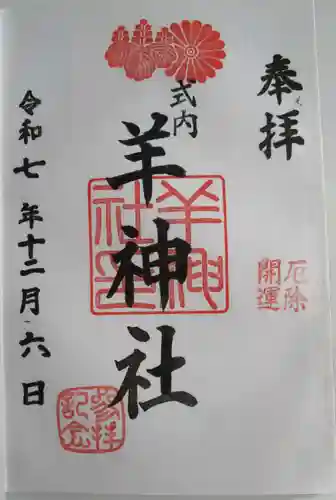 奉拝
厄除
開運
式内
羊神社
羊神
社印
参拝
記念
令和七年十二月六日